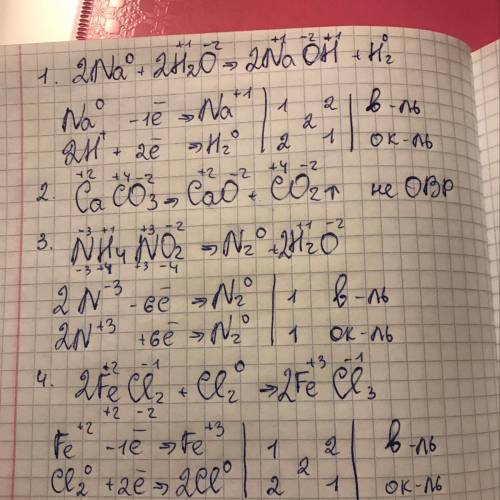 1. 2Na⁰ + 2H₂⁺¹O⁻² ⇒ 2Na⁺¹O⁻²H⁺¹ + H₂⁰
Na⁰ -1ē ⇒ Na⁺¹ | 1 2 | в-ль
2
2H⁺ + 2ē ⇒ H₂⁰ | 2 1 | ок-ль
2. Ca⁺²C⁺⁴O₃⁻² ⇒ Ca⁺²O⁻² + C⁺⁴O₂⁻²↑ не ОВР
3. N⁻³H₄⁺¹N⁺³O₂⁻² ⇒ N₂⁰ + 2H₂⁺¹O⁻²
-3 +4 +3 -4
2N⁻³ -6ē ⇒ N₂⁰ | 1 в-ль
2N⁺³ +6ē ⇒ N₂⁰ | 1 ок-ль
4. 2Fe⁺²Cl₂⁻¹ + Cl₂⁰ ⇒ 2Fe⁺³Cl₃⁻¹
+2 -2
Fe⁺² -1ē ⇒ Fe⁺³ | 1 2 | в-ль
2
Cl₂⁰ +2ē ⇒ 2Cl⁰ | 2 1 | ок-ль